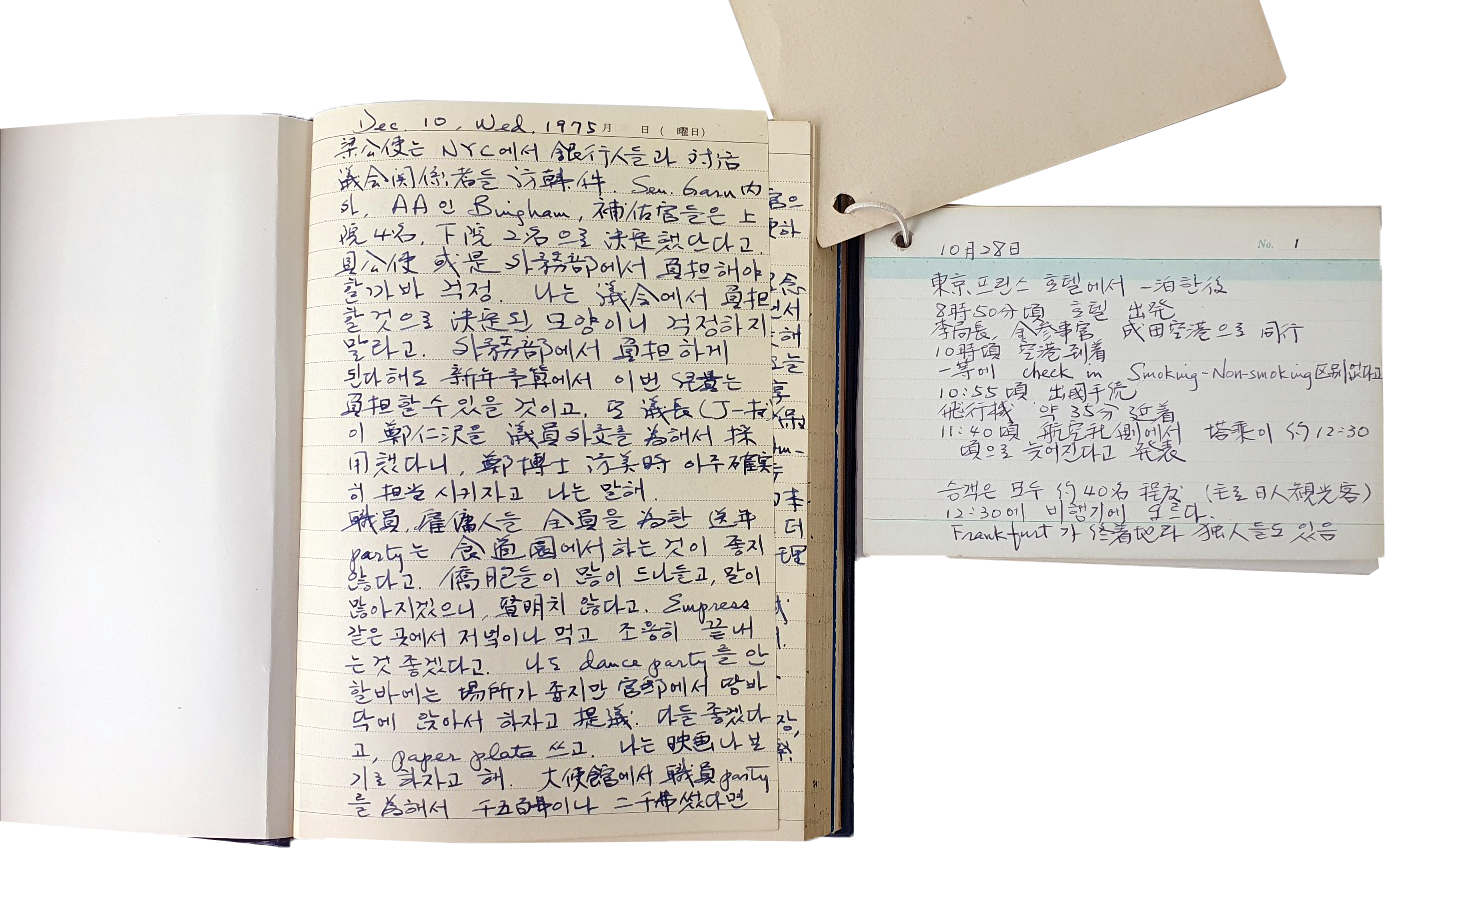 Dec. 10, Wed. 1975 月 日 ( 曜日)
梁公使는 NYC에서 銀行人들과 対話
議会関係者들 訪韓件. Sen. Garn 内
外, AA인 Bingham, 補佐官들은 上
院 4名, 下院 2名으로 決定했단다고.
具公使 或是 外務部에서 負担해야
할가바 걱정. 나는 議会에서 負担
할 것으로 決定된 모양이니 걱정하지
말라고. 外務部에서 負担하게
된다해도 新年予算에서 이번 経費는
負担할 수 있을 것이고, 또 議長(J-권)
이 鄭仁沢을 議員外交를 為해서 採
用했다니, 鄭博士 訪美時 아주 確実
히 担当시키자고 나는 말해.
職員, 雇傭人들 全員을 為한 送年
party는 食道園에서 하는 것이 좋지
않다고. 僑胞들이 많이 드나들고, 말이
많아지겠으니, 賢明치 않다고. Empress
같은 곳에서 저녁이나 먹고 조용히 끝내
는 것 좋겠다고. 나도 dance party를 안
할바에는 場所가 좁지만 官邸에서 땅바
닥에 앉아서 하자고 提議. 다들 좋겠다
고, paper plate 쓰고. 나는 映画나 보
기로 하자고 해. 大使館에서 職員 party
를 為해서 千五百弗이나 二千弗 썼다면
10月28日
No. 1
東京 프린스 호텔에서 一泊한 後
8時50分頃 호텔 出発
李局長, 金参事官 成田空港으로 同行
10時頃 空港 到着
一等에 check in Smoking-Non-smoking 区別 없다고
10:55頃 出國手続
飛行機 약 35分 延着
11:40頃 航空社側에서 搭乗이 약 12:30
頃으로 늦어진다고 発表
승객은 모두 약 40名 程度 (主로 日人観光客)
12:30에 비행기에 오르다.
Frankfurt가 終着地라 独人들도 있음